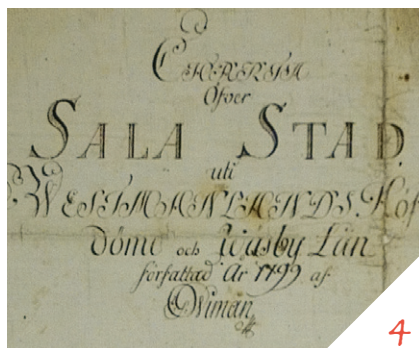 CHARTA
Öfver
SALA STAD
uti
WESTMANLANDS. Höf
döme och Wäsby Län
författad År 1799 af
Wiman
4